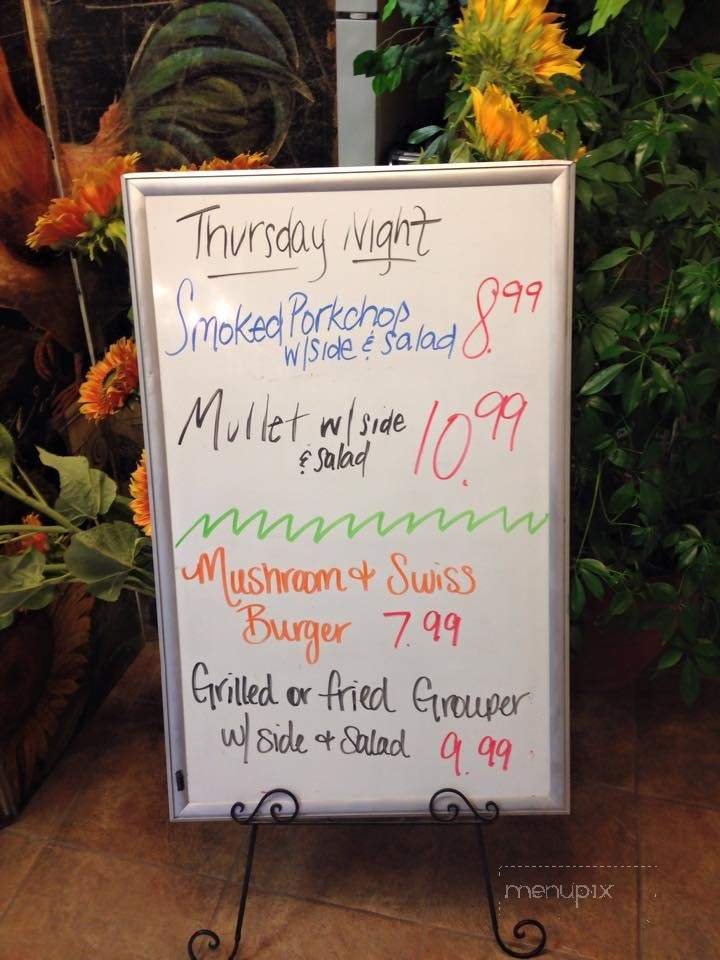 Thursday Night
Smoked Porkchop 8.99
w/side & salad
Mullet w/side 10.99
& salad
Mushroom & Swiss
Burger 7.99
Grilled or fried Grouper
w/ side & Salad 9.99
menupix